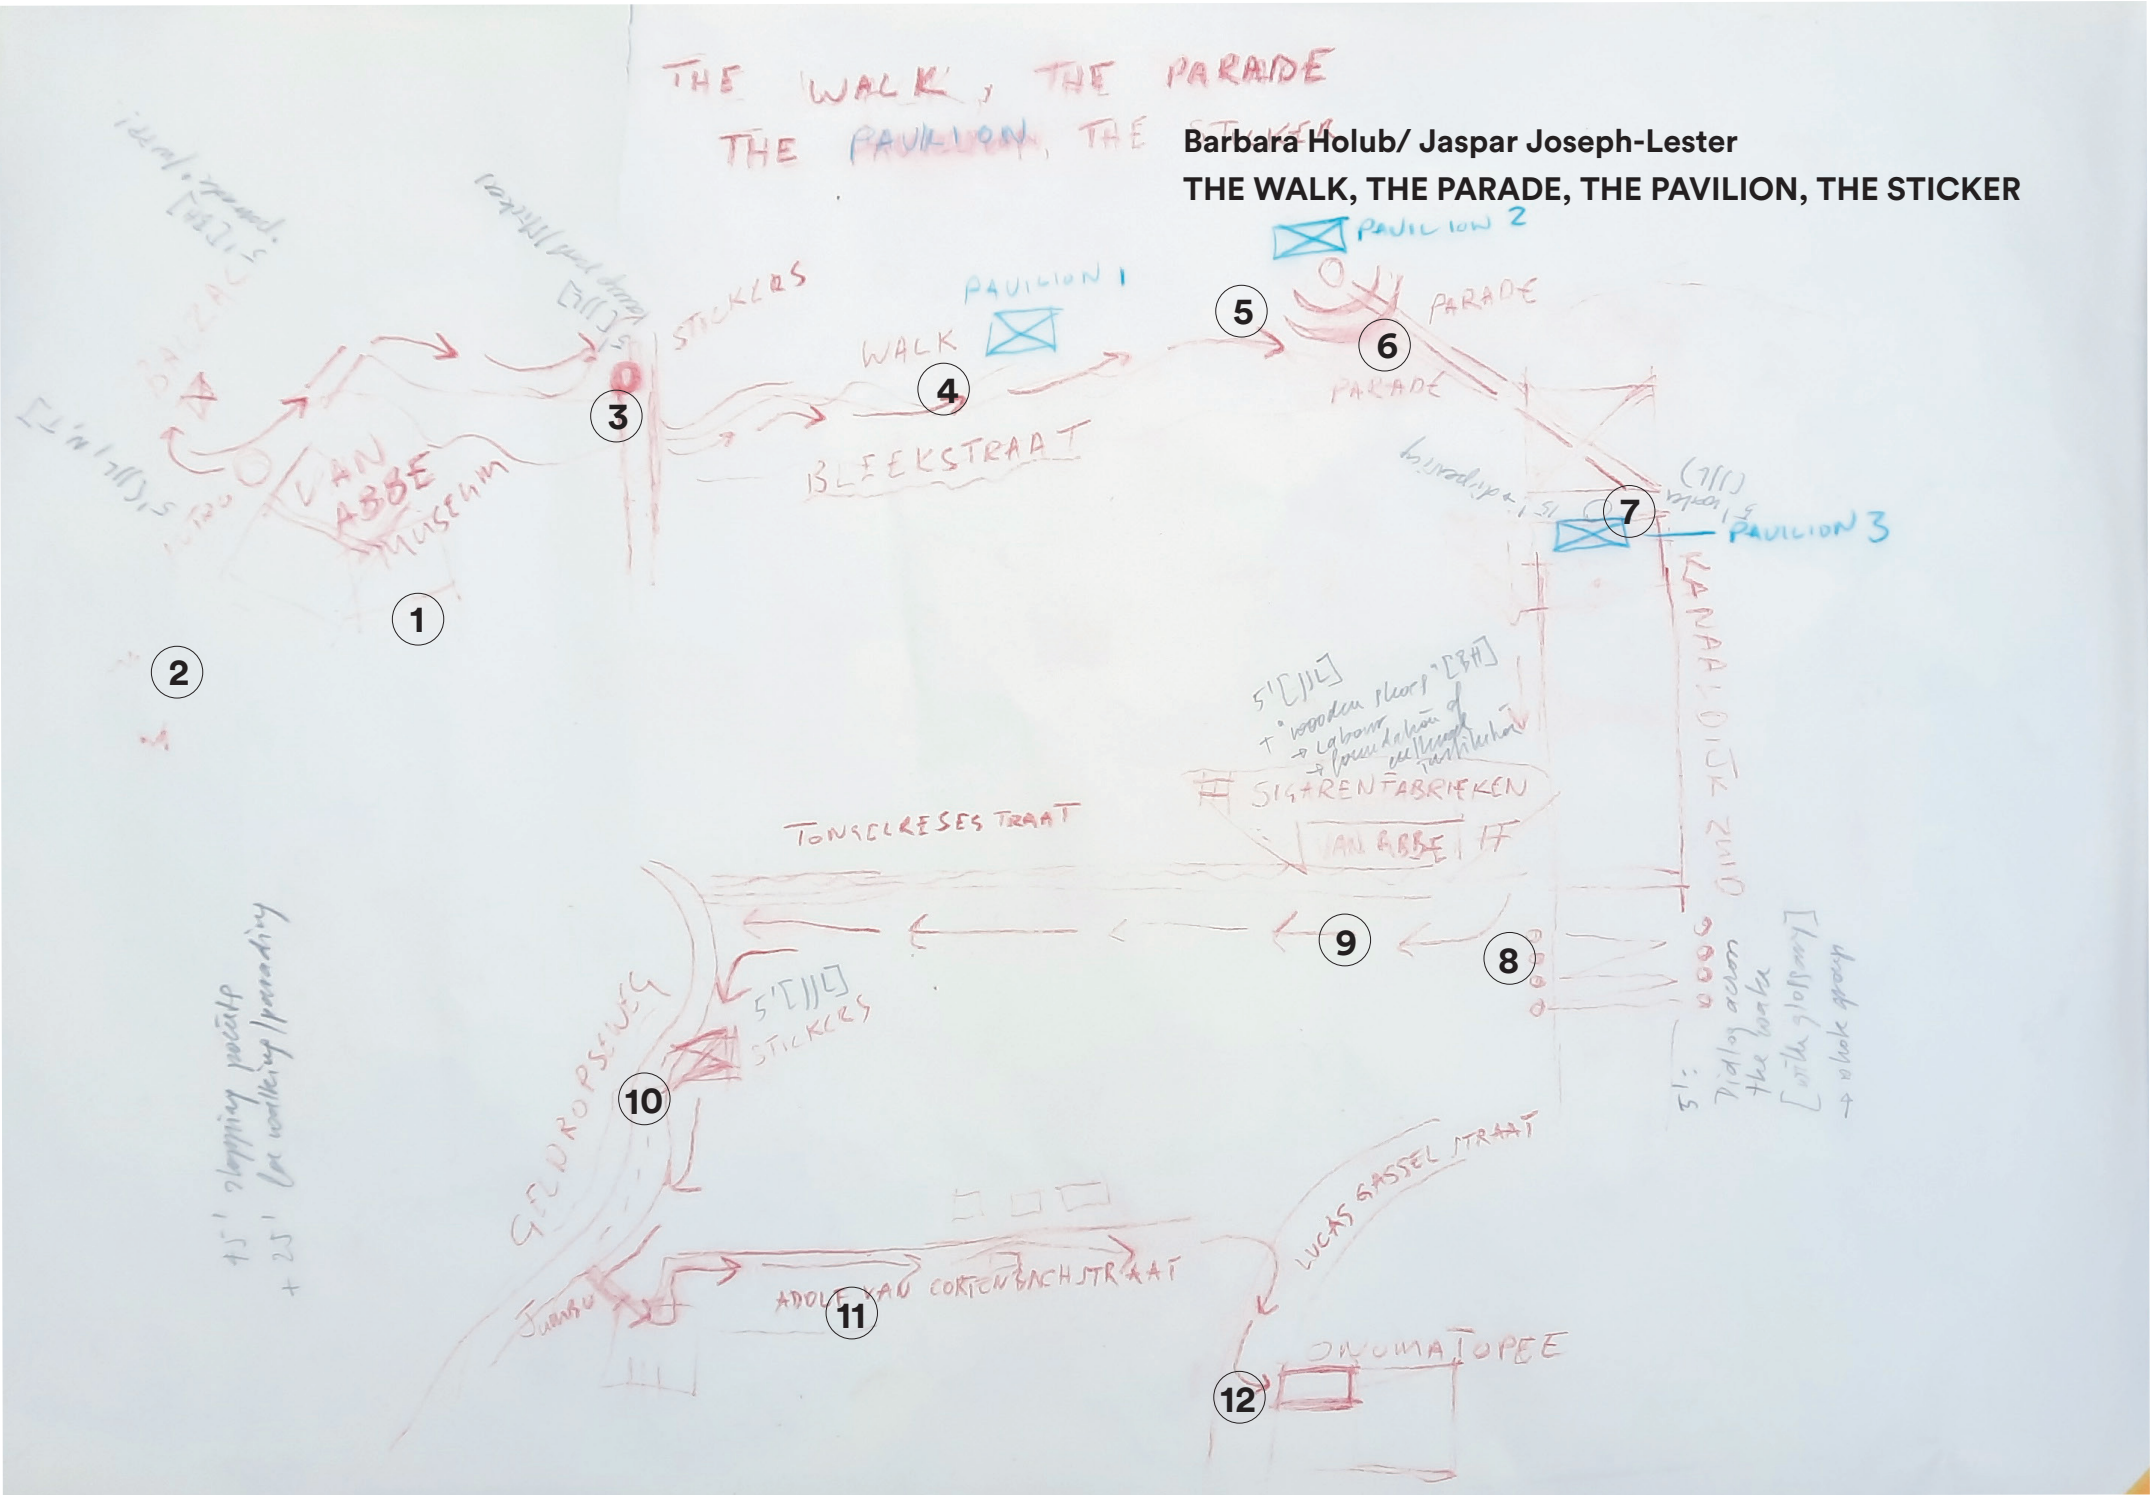 THE WALK, THE PARADE
THE PAVILION, THE STICKER
Barbara Holub/ Jaspar Joseph-Lester
THE WALK, THE PARADE, THE PAVILION, THE STICKER
PAVILION 2
PAVILION 1
STICKERS
WALK
PARADE
PARADE
5
6
4
3
BLEEKSTRAAT
VAN
ABBE
MUSEUM
INTRO
7
PAVILION 3
KANAALDIJK ZUID
1
2
5' [JJL]
+ "wooden shoes" [BH]
→ Labour
→ foundation of
cultural
institution
SIGARENFABRIEKEN
VAN ABBE 17
TONGELRESESTRAAT
9
8
5':
Dialog across
the water
[with glossary]
→ whole group
45' stopping points
+ 25' for walking/parading
GELDROPSEWEG
5' [JJL]
STICKERS
10
LUCAS GASSEL STRAAT
JUMBO
ADOLF VAN CORTENBACHSTRAAT
11
ONOMATOPEE
12